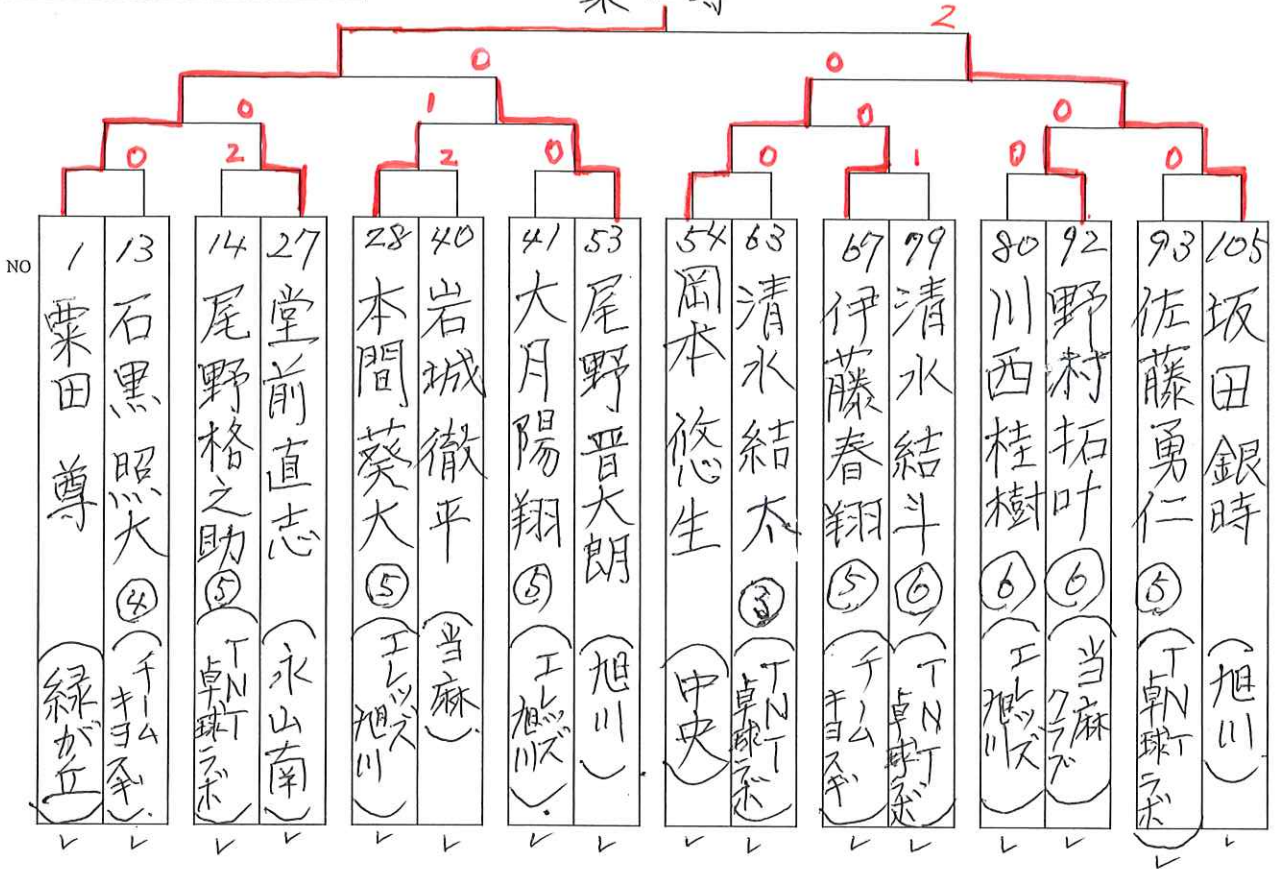 2
0 0
0 1 0 0
0 2 2 0 0 1 0 0
NO
1 粟田 尊 (緑が丘)
13 石黒 照大 ④ (チームキヨスギ)
14 尾野格之助 ⑤ (TNT卓球ラボ)
27 堂前直志 (永山南)
28 本間葵大 ⑤ (エレッズ旭川)
40 岩城徹平 (当麻)
41 大月陽翔 ⑤ (エレッズ旭川)
53 尾野晋太朗 (旭川)
54 岡本 悠生 (中央)
63 清水結太 (TNT卓球ラボ)
67 伊藤春翔 ⑤ (チームキヨスギ)
79 清水結斗 ⑥ (TNT卓球ラボ)
80 川西桂樹 ⑥ (エレッズ旭川)
92 野村拓叶 ⑥ (当麻クラブ)
93 佐藤勇仁 ⑤ (TNT卓球ラボ)
105 坂田銀時 (旭川)